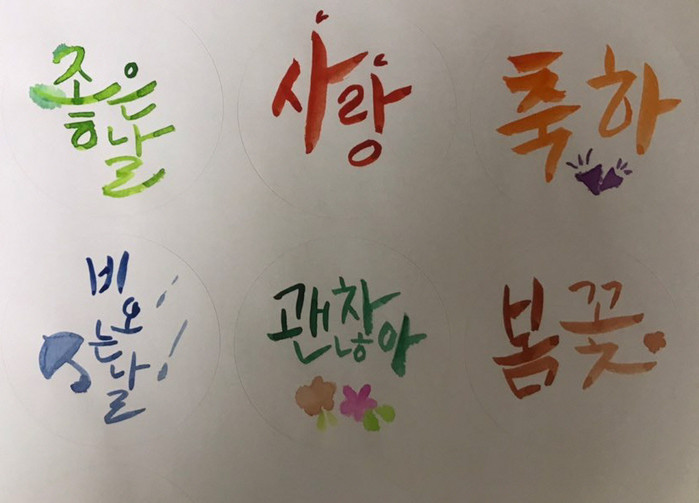 좋은
날
사랑
축하
비
오
는
날
괜찮아
봄꽃